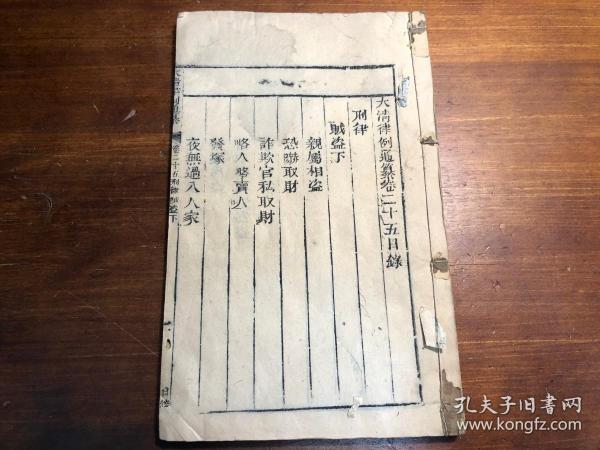 大清律例通纂卷二十五目錄
刑律
賊盜下
親屬相盜
恐嚇取財
詐欺官私取財
略人略賣人
發塚
夜無過入人家
卷二十五刑律賊盜下
目錄
孔夫子旧书网
www.kongfz.com